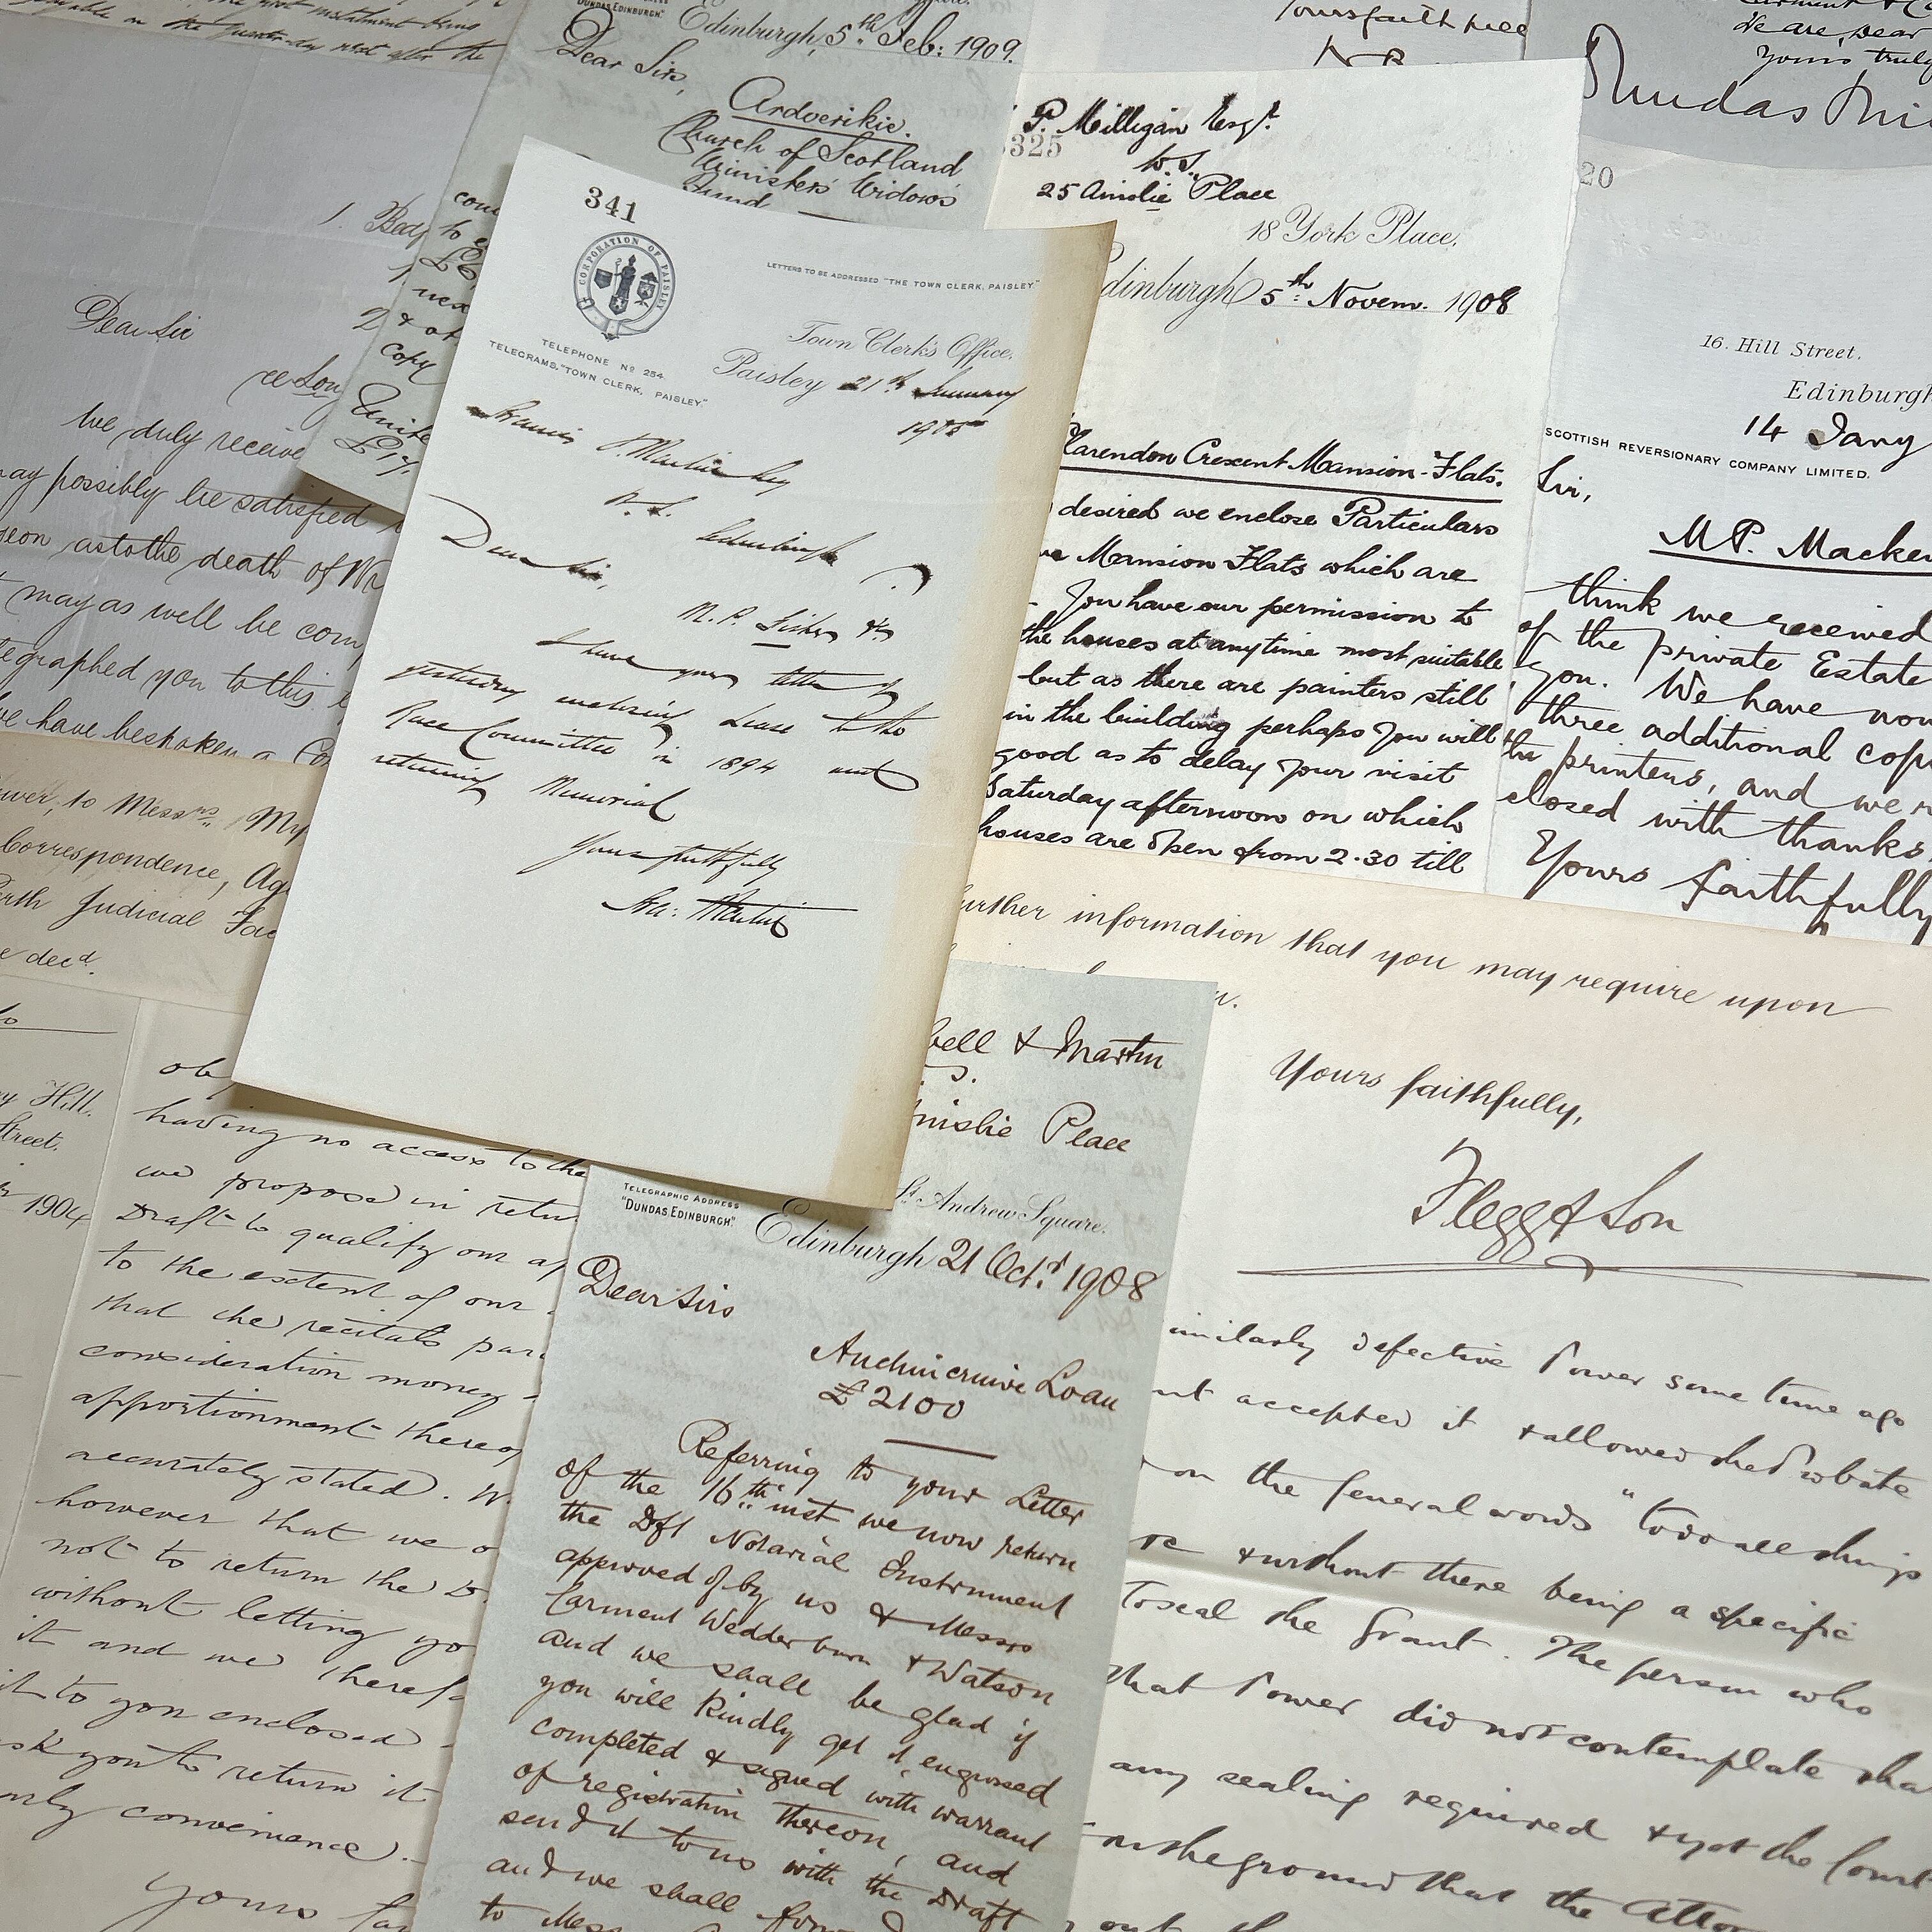 payable on the
Dear Sir
We duly receive
may possibly be satisfied
as to the death of
may as well be com
telegraphed you to this
we have bespoken a
to Messrs
Correspondence, Ag
Judicial Fac
decd.
Hill.
Street.
1904
having no access to the
we propose in retu
Draft to qualify our a
to the extent of our
that the recitals par
consideration money
apportionment thereof
accurately stated. W
however that we
not to return the D
without letting yo
it and we theref
it to you enclosed
ask you to return it
convenience.
yours fa
copy
"DUNDAS EDINBURGH"
Edinburgh, 5th Feb: 1909.
Dear Sirs,
Ardverikie.
Church of Scotland
Ministers' Widows'
Fund
341
CORPORATION OF PAISLEY
LETTERS TO BE ADDRESSED "THE TOWN CLERK, PAISLEY."
TELEPHONE No 254.
TELEGRAMS, "TOWN CLERK, PAISLEY."
Town Clerk's Office,
Paisley 21st January
1905
Francis J. Martin Esq
W.S.
Edinburgh
Dear Sir,
I have your letter of
yesterday enclosing Lease to the
Race Committee in 1894 and
returning Memorial
Yours faithfully
Martin
Yours faithfully
P. Milligan Esqr.
325
W.S.
25 Ainslie Place
18 York Place,
Edinburgh 5th Novem. 1908
Clarendon Crescent Mansion-Flats.
desired we enclose Particulars
Mansion Flats which are
You have our permission to
the houses at any time most suitable
but as there are painters still
in the building perhaps you will
good as to delay your visit
Saturday afternoon on which
houses are open from 2.30 till
We are, Dear
yours truly
Dundas
20
16. Hill Street.
Edinburgh
14 Jany
SCOTTISH REVERSIONARY COMPANY LIMITED.
Sir,
think we received
of the private Estate
you. We have now
three additional cop
the printers, and we
closed with thanks
Yours faithfully
further information that you may require upon
Yours faithfully,
Flegg & Son
& Martin
Ainslie Place
TELEGRAPHIC ADDRESS
"DUNDAS EDINBURGH"
St Andrew Square.
Edinburgh 21 Octr. 1908
Dear Sirs
Auchincruive Loan
£2100
Referring to your Letter
of the 16th inst we now return
the Dft Notarial Instrument
approved of by us & Messrs
Carment Wedderburn & Watson
and we shall be glad if
you will kindly get it engrossed
completed & signed with warrant
of registration thereon, and
send it to us with the Draft
and we shall
to Mess
similarly defective Power some time ago
accepted it & allowed the Probate
on the general words "to do all things
& without there being a specific
To seal the Grant. The person who
that Power did not contemplate tha
any sealing required & yet the Court
on the ground that the Attor